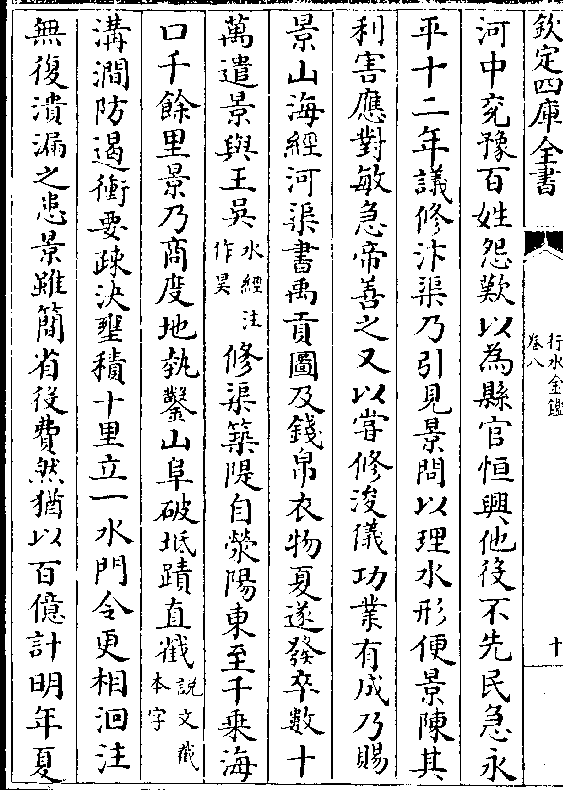 欽定四庫全書
行水金鑑
卷八
十
河中兖豫百姓怨歎以為縣官恒興他役不先民急永
平十二年議修汴渠乃引見景問以理水形便景陳其
利害應對敏急帝善之又以甞修浚儀功業有成乃賜
景山海經河渠書禹貢圖及錢帛衣物夏遂發卒數十
萬遣景與王吳水經注作昊修渠築隄自滎陽東至千乗海
口千餘里景乃商度地埶鑿山阜破坻蹟直戳説文戳本字
溝澗防遏衝要疎決壅積十里立一水門令更相洄注
無復潰漏之患景雖簡省役費然猶以百億計明年夏